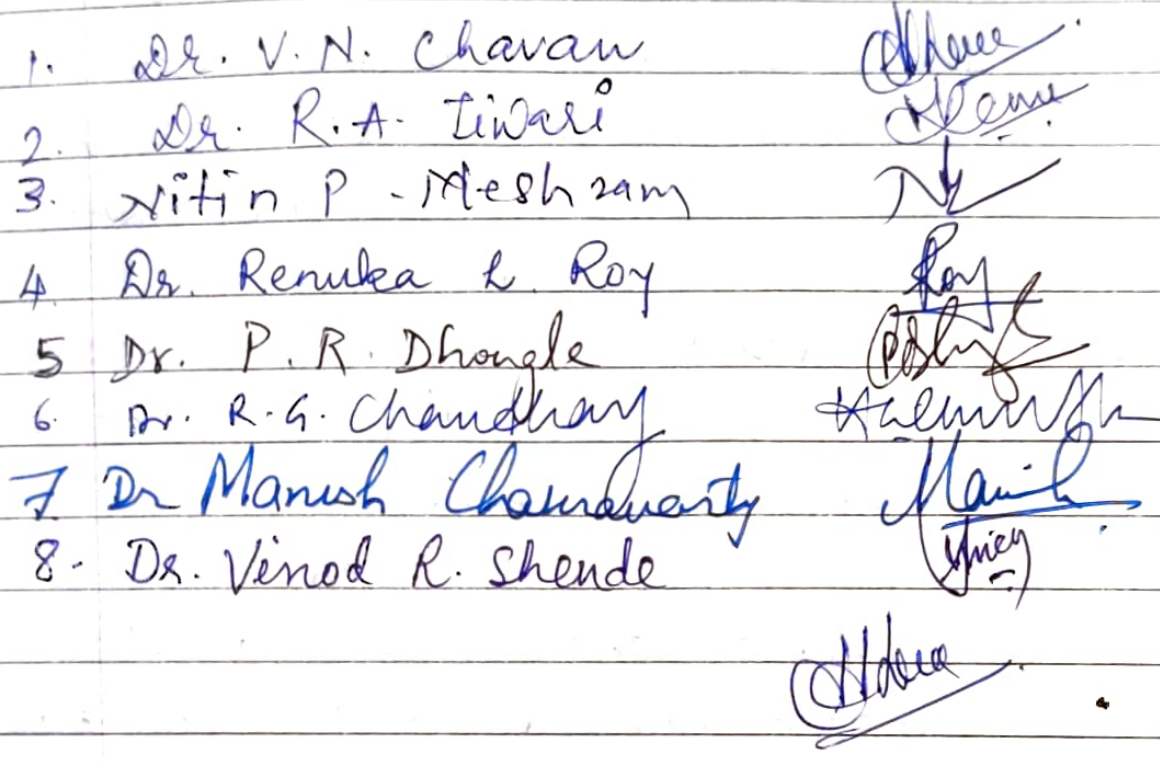 1. Dr. V. N. Chavan
2. Dr. R. A. Tiwari
3. Nitin P. Meshram
4 Dr. Renuka L Roy Roy
5 Dr. P. R. Dhongle
6. Dr. R. G. Chaudhary
7 Dr Manish Chakravarty Manish
8. Dr. Vinod R. Shende